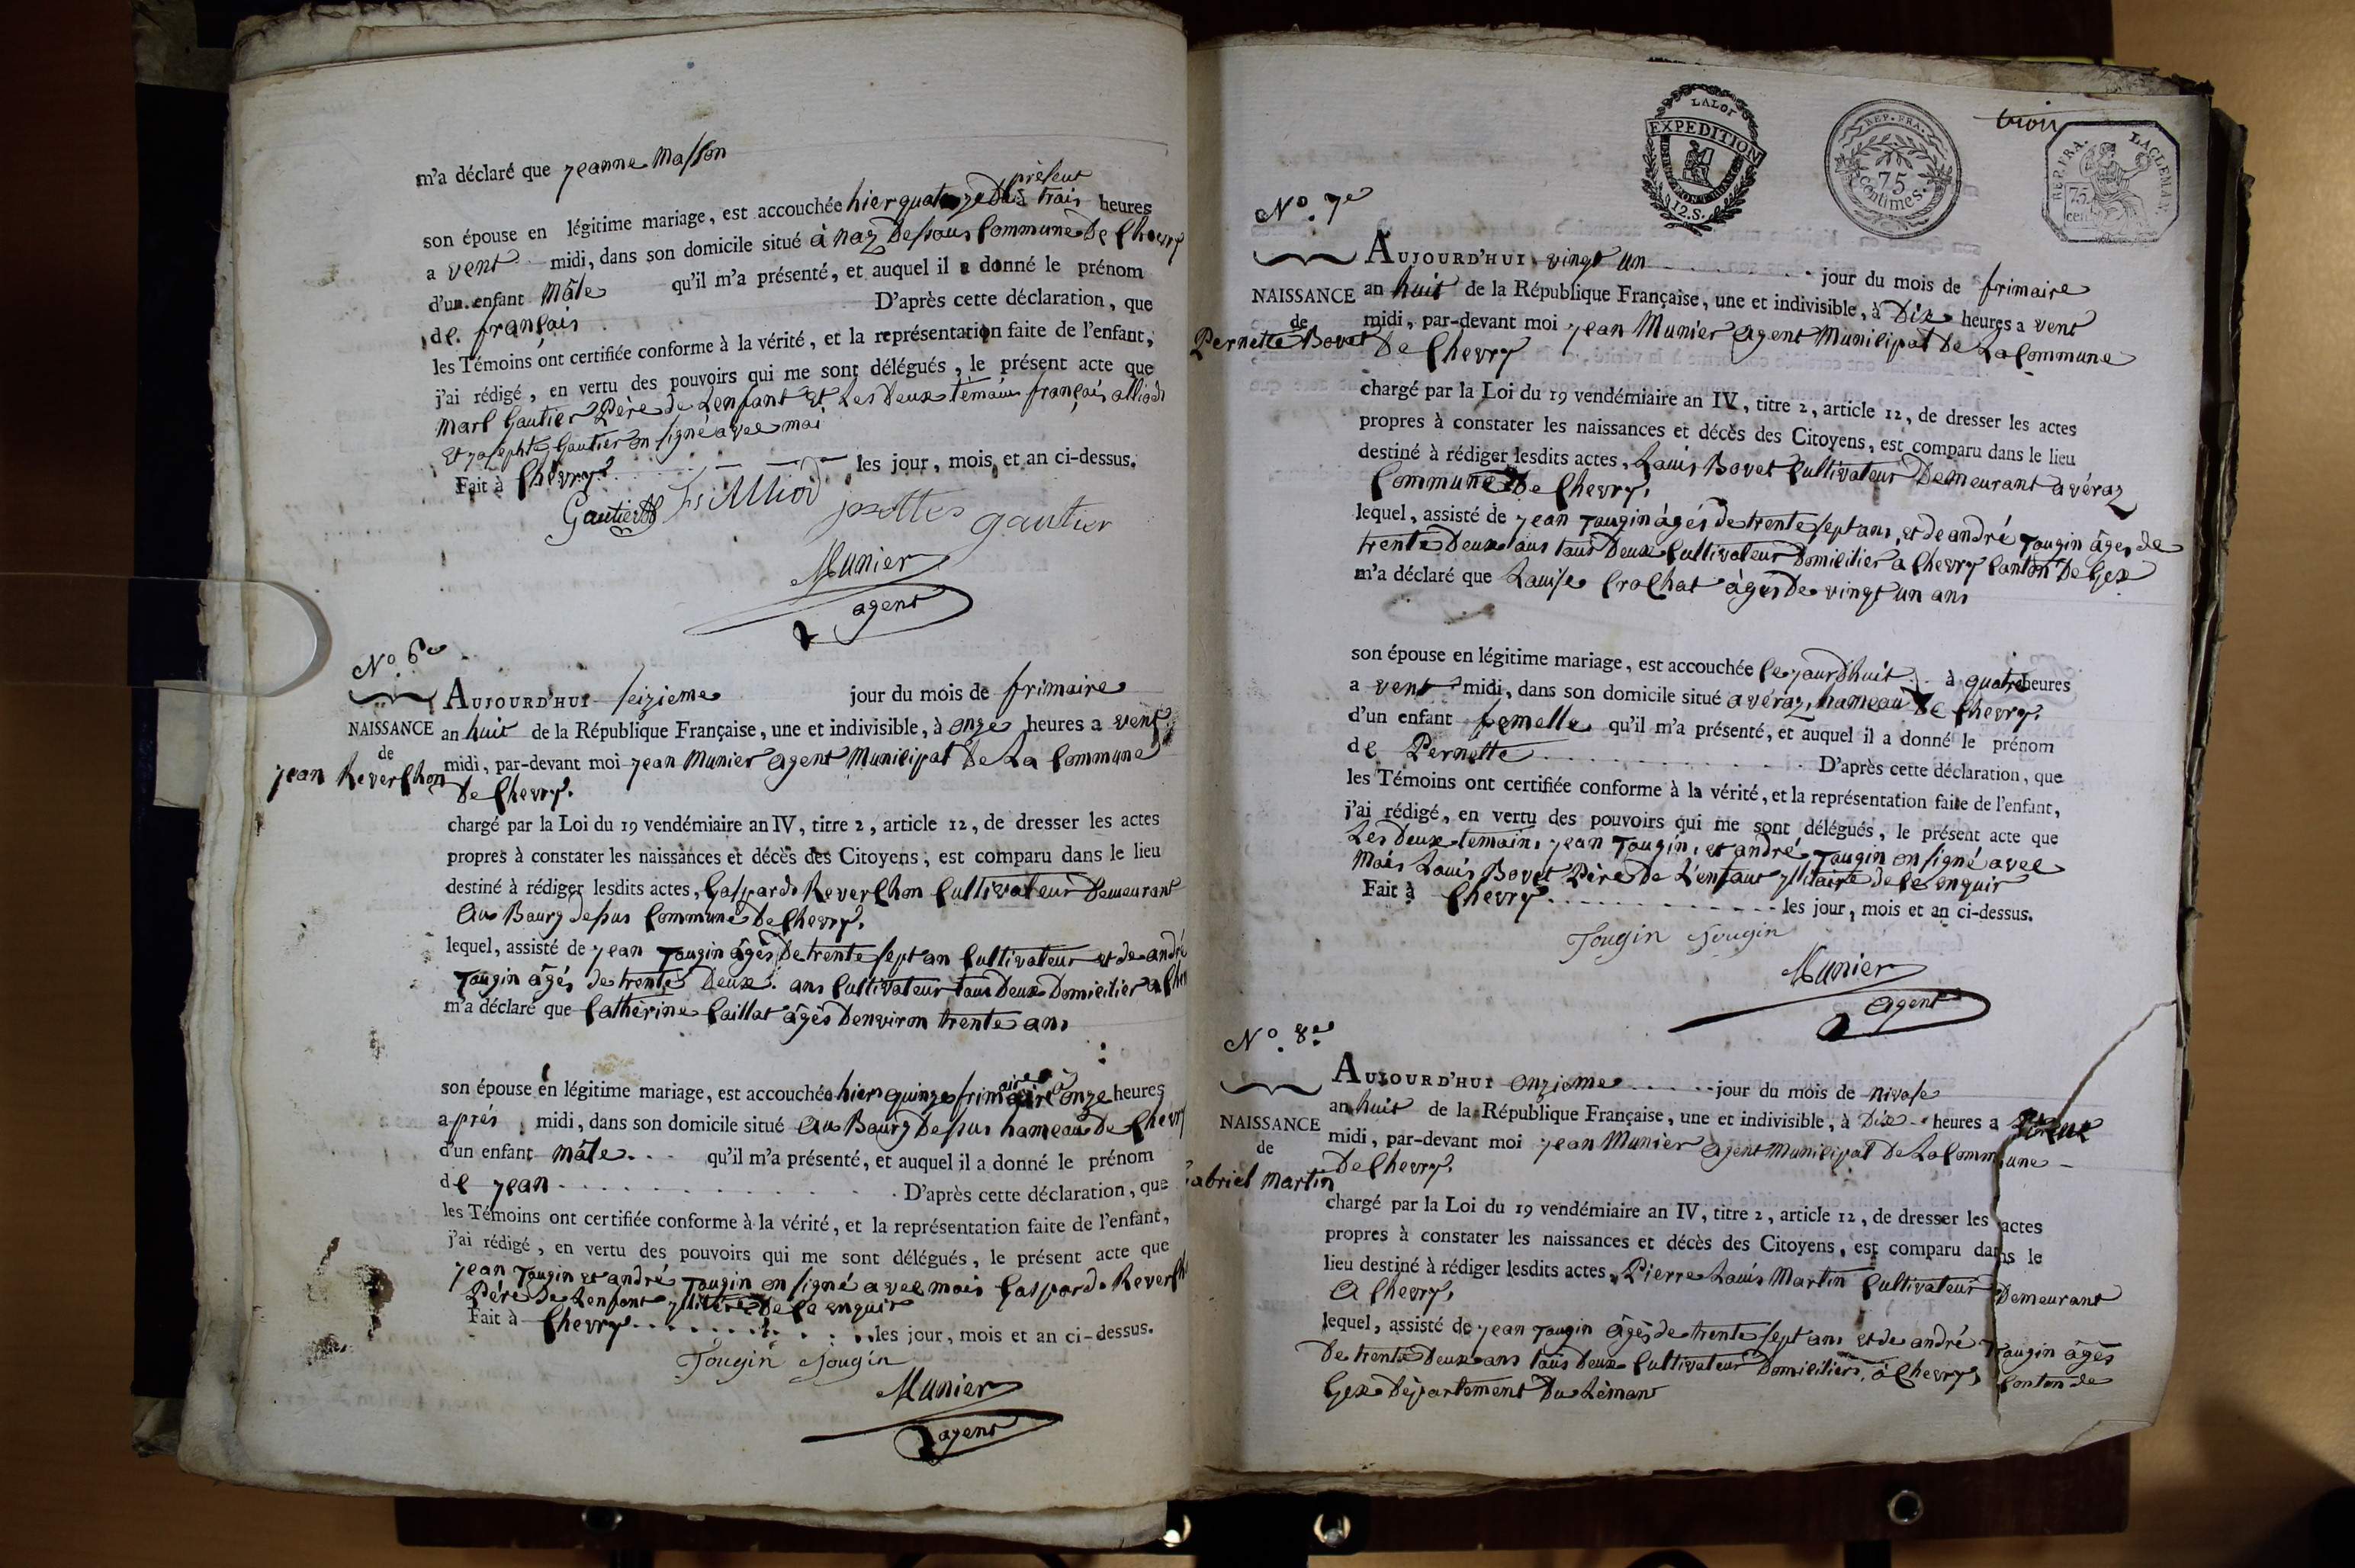 m'a déclaré que jeanne Masson
présent
son épouse en légitime mariage, est accouchée hier quatorze du à trais heures
a vent midi, dans son domicile situé à naz Dessous Commune De Chevry
d'un enfant Mâle qu'il m'a présenté, et auquel il a donné le prénom
de français D'après cette déclaration, que
les Témoins ont certifiée conforme à la vérité, et la représentation faite de l'enfant,
j'ai rédigé, en vertu des pouvoirs qui me sont délégués, le présent acte que
Marc Gautier Père de Lenfant Et Les Deux témains françois alliod
Et josephte Gautier on signé avec mai
Fait à Chevry les jour, mois et an ci-dessus.
Gautier alliod josette gautier
Munier
agent
N.º 6e
AUJOURD'HUI seizieme jour du mois de frimaire
NAISSANCE an huit de la République Française, une et indivisible, à onze heures a vent
de midi, par-devant moi jean Munier agent Municipal De La Commune
jean Reverchon De Chevry.
chargé par la Loi du 19 vendémiaire an IV, titre 2, article 12, de dresser les actes
propres à constater les naissances et décès des Citoyens, est comparu dans le lieu
destiné à rédiger lesdits actes, Gaspard Reverchon Cultivateur Demeurant
Au Bourg Dessus Commune De Chevry.
lequel, assisté de jean Tougin âgés De trente sept an Cultivateur et de andré
Tougin âgés de trente Deux ans Cultivateur tous Deux Domicilier a Chev
m'a déclaré que Catherine Caillat âgés Denviron trente ans
son épouse en légitime mariage, est accouchée hier quinze frimaire à onze heures
aprés midi, dans son domicile situé Au Bourg Dessus hameau De Chevry
d'un enfant mâle qu'il m'a présenté, et auquel il a donné le prénom
de jean D'après cette déclaration, que
les Témoins ont certifiée conforme à la vérité, et la représentation faite de l'enfant,
j'ai rédigé, en vertu des pouvoirs qui me sont délégués, le présent acte que
jean Tougin et andré Tougin on signé avec mois Gaspard Reverch
Père De Lenfant yllitéré De ce enquir
Fait à Chevry les jour, mois et an ci-dessus.
Tougin Tougin
Munier
agent
LALOI
EXPEDITION
12.S.
REP. FRA.
75
centimes.
trois
REP. FRA.
LA CLEMAN.
75
cen.
N.º 7e
AUJOURD'HUI vingt un jour du mois de frimaire
NAISSANCE an huit de la République Française, une et indivisible, à Dix heures a vent
de midi, par-devant moi jean Munier Agent Municipal De La Commune
Pernette Bovet De Chevry
chargé par la Loi du 19 vendémiaire an IV, titre 2, article 12, de dresser les actes
propres à constater les naissances et décès des Citoyens, est comparu dans le lieu
destiné à rédiger lesdits actes, Louis Bovet Cultivateur Demeurant a véraz
Commune De Chevry.
lequel, assisté de jean Tougin âgés de trente sept ans, et de andré Tougin âges de
trente Deux ans tous Deux Cultivateur Domicilier a Chevry Canton De Gex
m'a déclaré que Louise Crochat âgés De vingt un ans
son épouse en légitime mariage, est accouchée Ce jourdhuit à quatre heures
a vent midi, dans son domicile situé a véraz, hameau De Chevry.
d'un enfant femelle qu'il m'a présenté, et auquel il a donné le prénom
de Pernette D'après cette déclaration, que
les Témoins ont certifiée conforme à la vérité, et la représentation faite de l'enfant,
j'ai rédigé, en vertu des pouvoirs qui me sont délégués, le présent acte que
Les Deux temains jean Tougin, et andré Tougin on signé avec
Mois Louis Bovet Père De L'enfant yllitaire de ce enquir
Fait à Chevry les jour, mois et an ci-dessus.
Tougin Tougin
Munier
agent
N.º 8e
AUJOURD'HUI onzieme jour du mois de nivose
NAISSANCE an huit de la République Française, une et indivisible, à Dix heures a
de midi, par-devant moi jean Munier agent municipal De La Commune
abriel Martin De Chevry.
chargé par la Loi du 19 vendémiaire an IV, titre 2, article 12, de dresser les actes
propres à constater les naissances et décès des Citoyens, est comparu dans le
lieu destiné à rédiger lesdits actes, Pierre Louis Martin Cultivateur Demeurant
A Chevry,
lequel, assisté de jean Tougin âgés de trente sept ans et de andré Tougin âgés
De trente Deux ans tous Deux Cultivateur Domiciliers, à Chevry, Canton de
Gex Département Du Léman